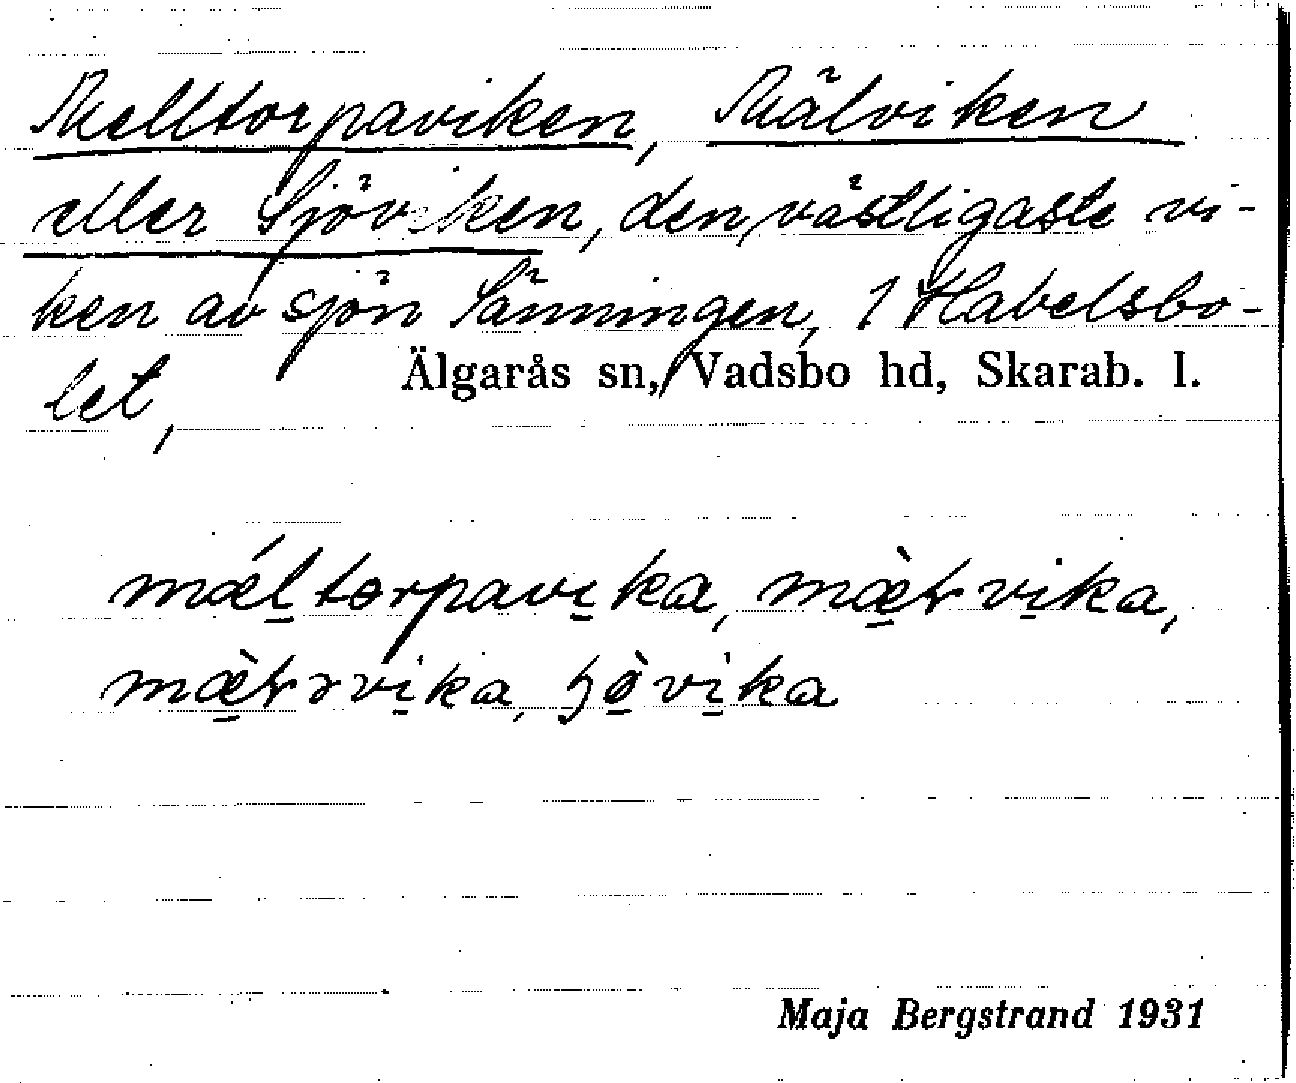 Melltorpaviken, Mälviken
eller Sjöviken, den västligaste vi-
ken av sjön Sänningen, 1 Habelsbo-
let,
Älgarås sn, Vadsbo hd, Skarab. l.
mǽl̲torpavi̲ka, mæ̲̀ɽvi̲ka,
mæ̲̀ɽɿvi̲ka, ɧø̲̀vi̲ka
Maja Bergstrand 1931